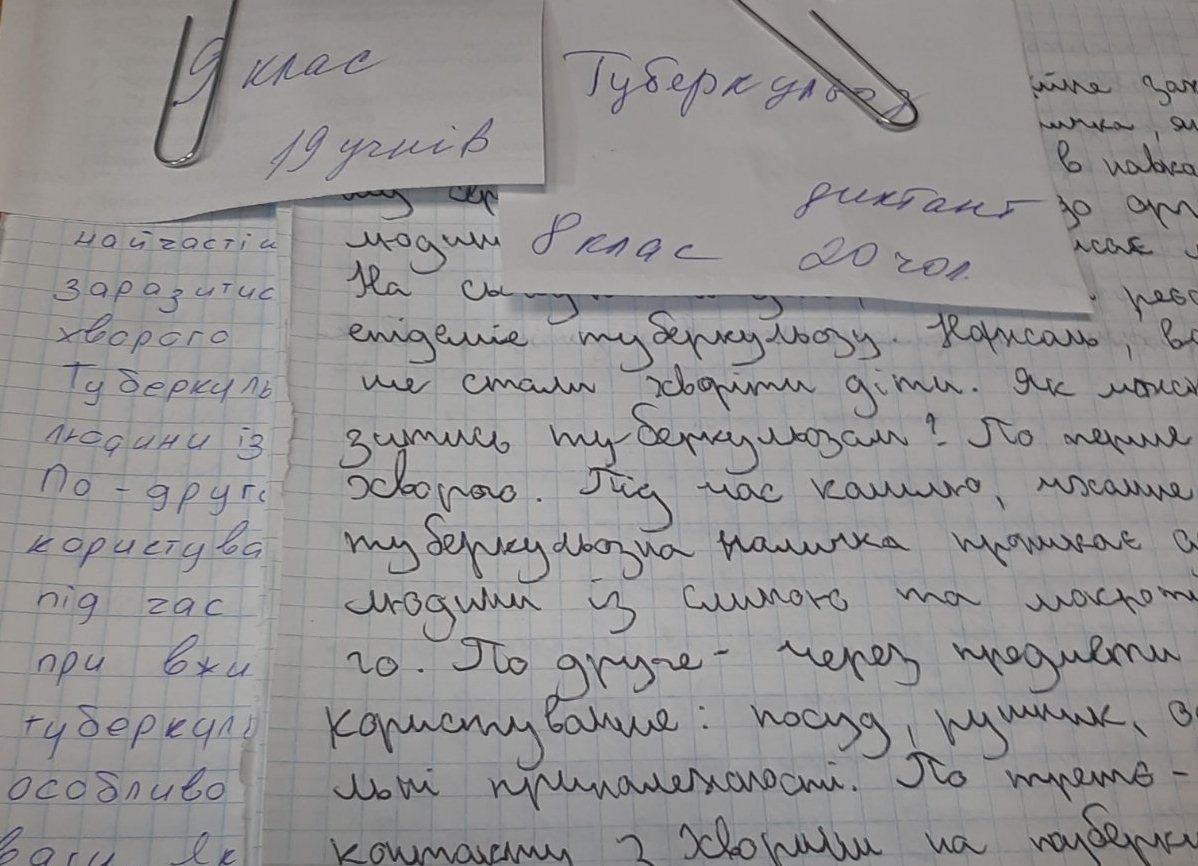 9 клас
19 учнів
Туберкульоз
диктант
8 клас 20 чол.
найчасті
заразитис
хворого
Туберкуль
людини із
По-друге
користува
під час
при вжи
туберкуль
особливо
ваги Як
йне зах
личка, як
в навко
людин
На
епідеміє туберкульозу. Нажаль, в
ше стали хворіти діти. Як мож
зитись туберкульозам? По перше
хворого. Під час кашлю, чхання
туберкульозна паличка проникає
людини із слиною та мокрот
го. По друге - через предмети
користування: посуд, рушник,
льні приналежності. По третє -
контакту з хворими на туберк